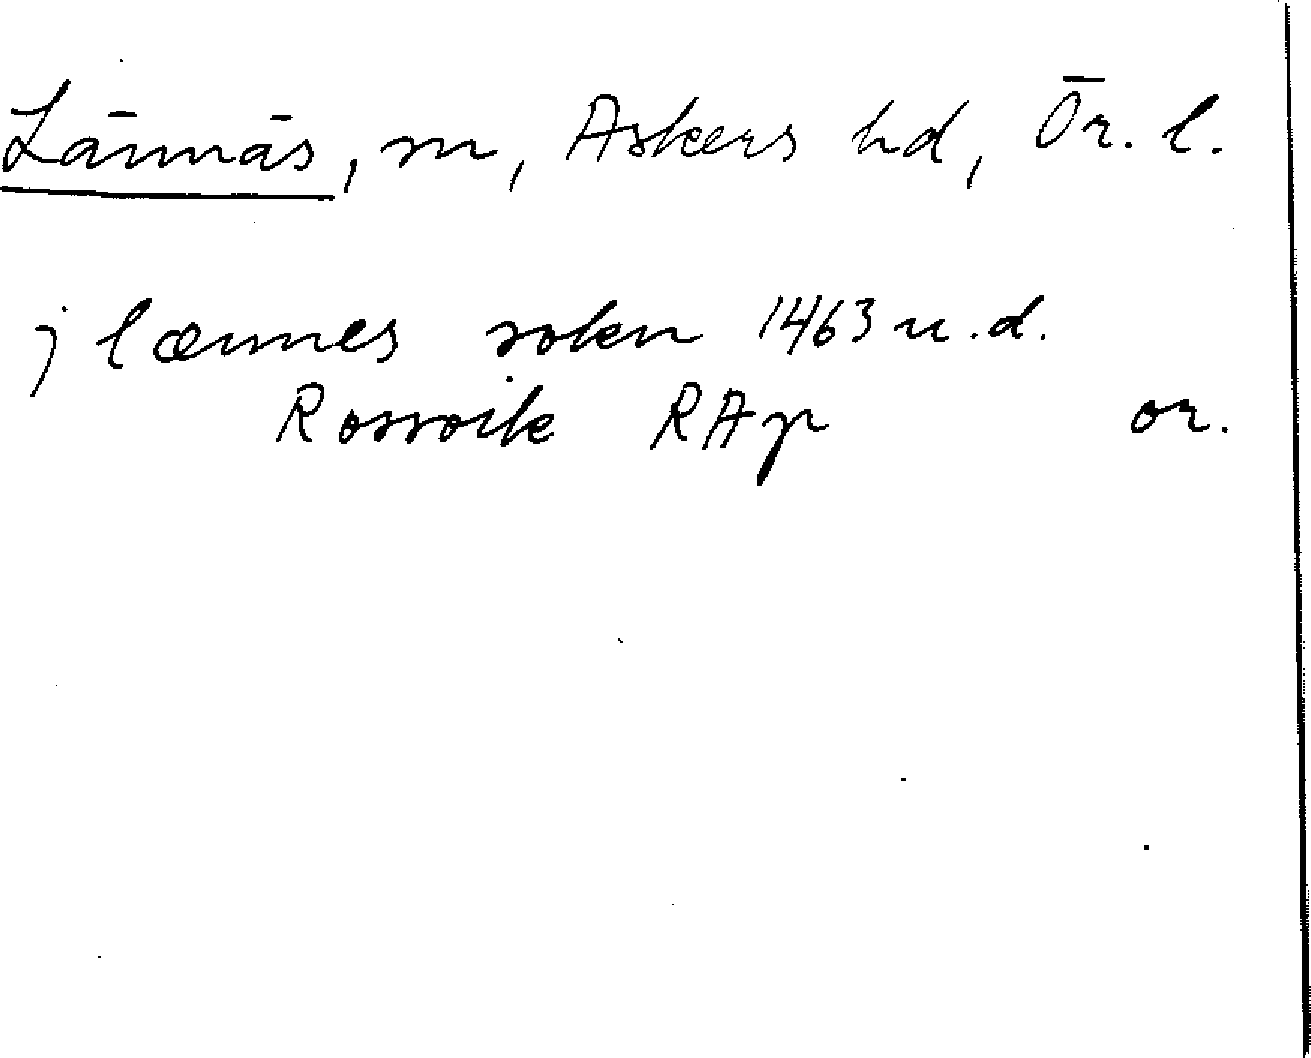 Lännäs, sn, Askers hd, Ör. l.
j lænnes sokn 1463 u.d.
Rossvik RAp or.